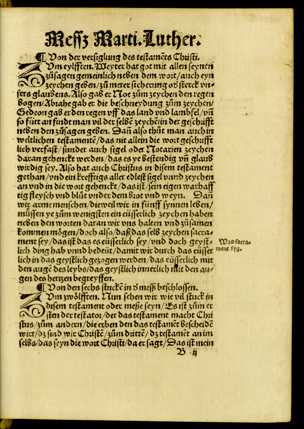 Mess Marti. Luther.
¶ Von der versiglung des testamēts Christi.
Zum eylfften. Weyter hat got mit allen seynen
zůsagen gemeinlich neben dem wort / auch eyn
zeychen geben / zů merer sicherung
unsers glaubens. Also gab er Noe zům zeychen den regen
bogen / Abrahe gab er die beschneydung zům zeychen /
Gedeon gab er den regen uff das land und
so fürt an findt man
neben den zůsagen geben. Dan also thůt man auch in
weltlichen testamētē / das nit allein die wort geschrifft
lich verfaßt / sunder auch sigel oder Notarien zeychen
daran gehenckt werden / das es ye bestendig
wirdig sey. Also hat auch Christus in disem testament
gethan / und ein krefftigs aller edlest sigel und zeychen
an und in die wort gehenckt / das ist / sein eigen warhaff
tig fleysch und blůt under dem brot und weyn. Dan
wir arme menschen, dieweil wir in fünff synnen leben /
müssen ye zům wenigsten ein eüsserlich zeychen haben
neben den worten daran wir uns halten und zůsamen
kommen mögen / doch also / das das selb zeychen sacra-
ment sey / das ist das es eüsserlich sey / und doch geyst-
lich ding hab und bedeüt / damit wir durch das eüsser
lich in das geystlich gezogen werden, das eüsserlich mit
den augē des leybs / das geystlich innerlich mit den au-
gen des hertzen begreyffen.
Was sacra-
ment sey.
¶ Von den sechs stuckē in d' mess beschlossen.
Zum zwölfften. Nun sehen wir wie vil stuck in
disem testament oder mess seyn / Es ist zům er
sten der testator / der das testament macht Chri
stus / zům andern / die erben den das testamēt bescheidē
wirt / dz sind wir Christē / zům drittē / dz testamēt an im
selbs / das seyn die wort Christi / da er sagt / Das ist mein
B ij